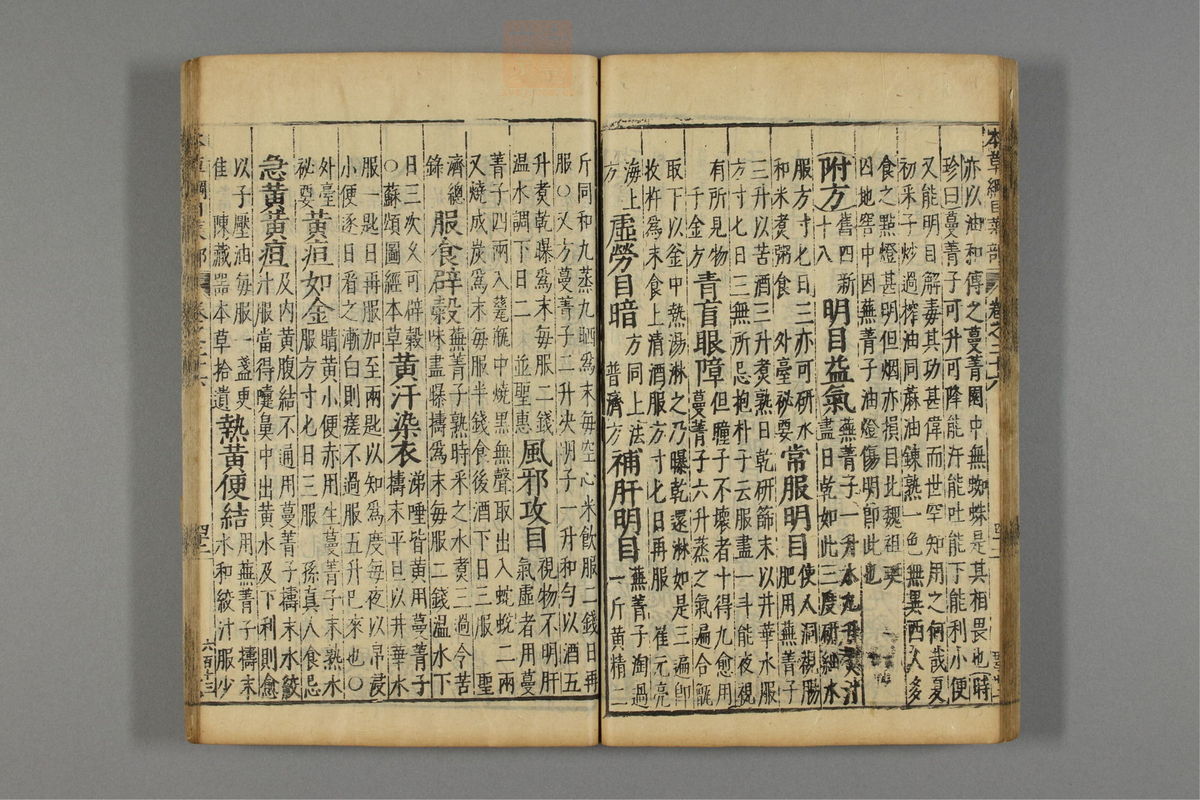 本草綱目菜部 卷之二十六
亦以油和傅之蔓菁園中無蜘蛛是其相畏也 時
珍曰蔓菁子可升可降能汗能吐能下能利小便
又能明目解毒其功甚偉而世罕知用之何哉夏
初采子炒過榨油同蔴油鍊熟一色無異西人多
食之㸃燈甚明但烟亦損目北魏祖珽
囚地窖中因蕪菁子油燈傷明即此也
附方 舊四新
十八
明目益氣 蕪菁子一升水九升煮汁
盡日乾如此三度研細水
服方寸匕日三亦可研水
和米煮粥食 外臺秘要
常服明目 使人洞視腸
肥用蕪菁子
三升以苦酒三升煮熟日乾研篩末以井華水服
方寸匕日三無所忌抱朴子云服盡一斗能夜視
有所見物
千金方
青盲眼障 但瞳子不壞者十得九愈用
蔓菁子六升蒸之氣遍合甑
取下以釜中熱湯淋之乃曝乾還淋如是三遍即
收杵爲末食上清酒服方寸匕日再服 崔元亮
海上
方
虛勞目暗 方同上法
普濟方
補肝明目 蕪菁子淘過
一斤黄精二
斤同和九蒸九晒爲末毎空心米飲服二錢日再
服○又方蔓菁子二升决明子一升和匀以酒五
升煮乾曝爲末毎服二錢
温水調下日二 並聖惠
風邪攻目 視物不明肝
氣虚者用蔓
菁子四兩入甆瓶中燒黒無聲取出入蛇蛻二兩
又燒成灰爲末毎服半錢食後酒下日三服 聖
濟總
錄
服食辟穀 蕪菁子熟時采之水煮三過令苦
味盡曝擣爲末毎服二錢温水下
日三次久可辟穀
○蘇頌圖經本草
黄汗染衣 涕唾皆黄用蔓菁子
擣末平旦以井華水
服一匙日再服加至兩匙以知爲度毎夜以帛浸
小便逐日看之漸白則瘥不過服五升已來也○
外臺
秘要
黄疸如金 睛黄小便赤用生蔓菁子末熟水
服方寸匕日三服 孫真人食忌
急黄黄疸 及内黄腹結不通用蔓菁子擣末水絞
汁服當得嚏鼻中出黄水及下利則愈
以子壓油毎服一盞更
佳 陳藏器本草拾遺
熱黄便結 用蕪菁子擣末
水和絞汁服少
六百十三